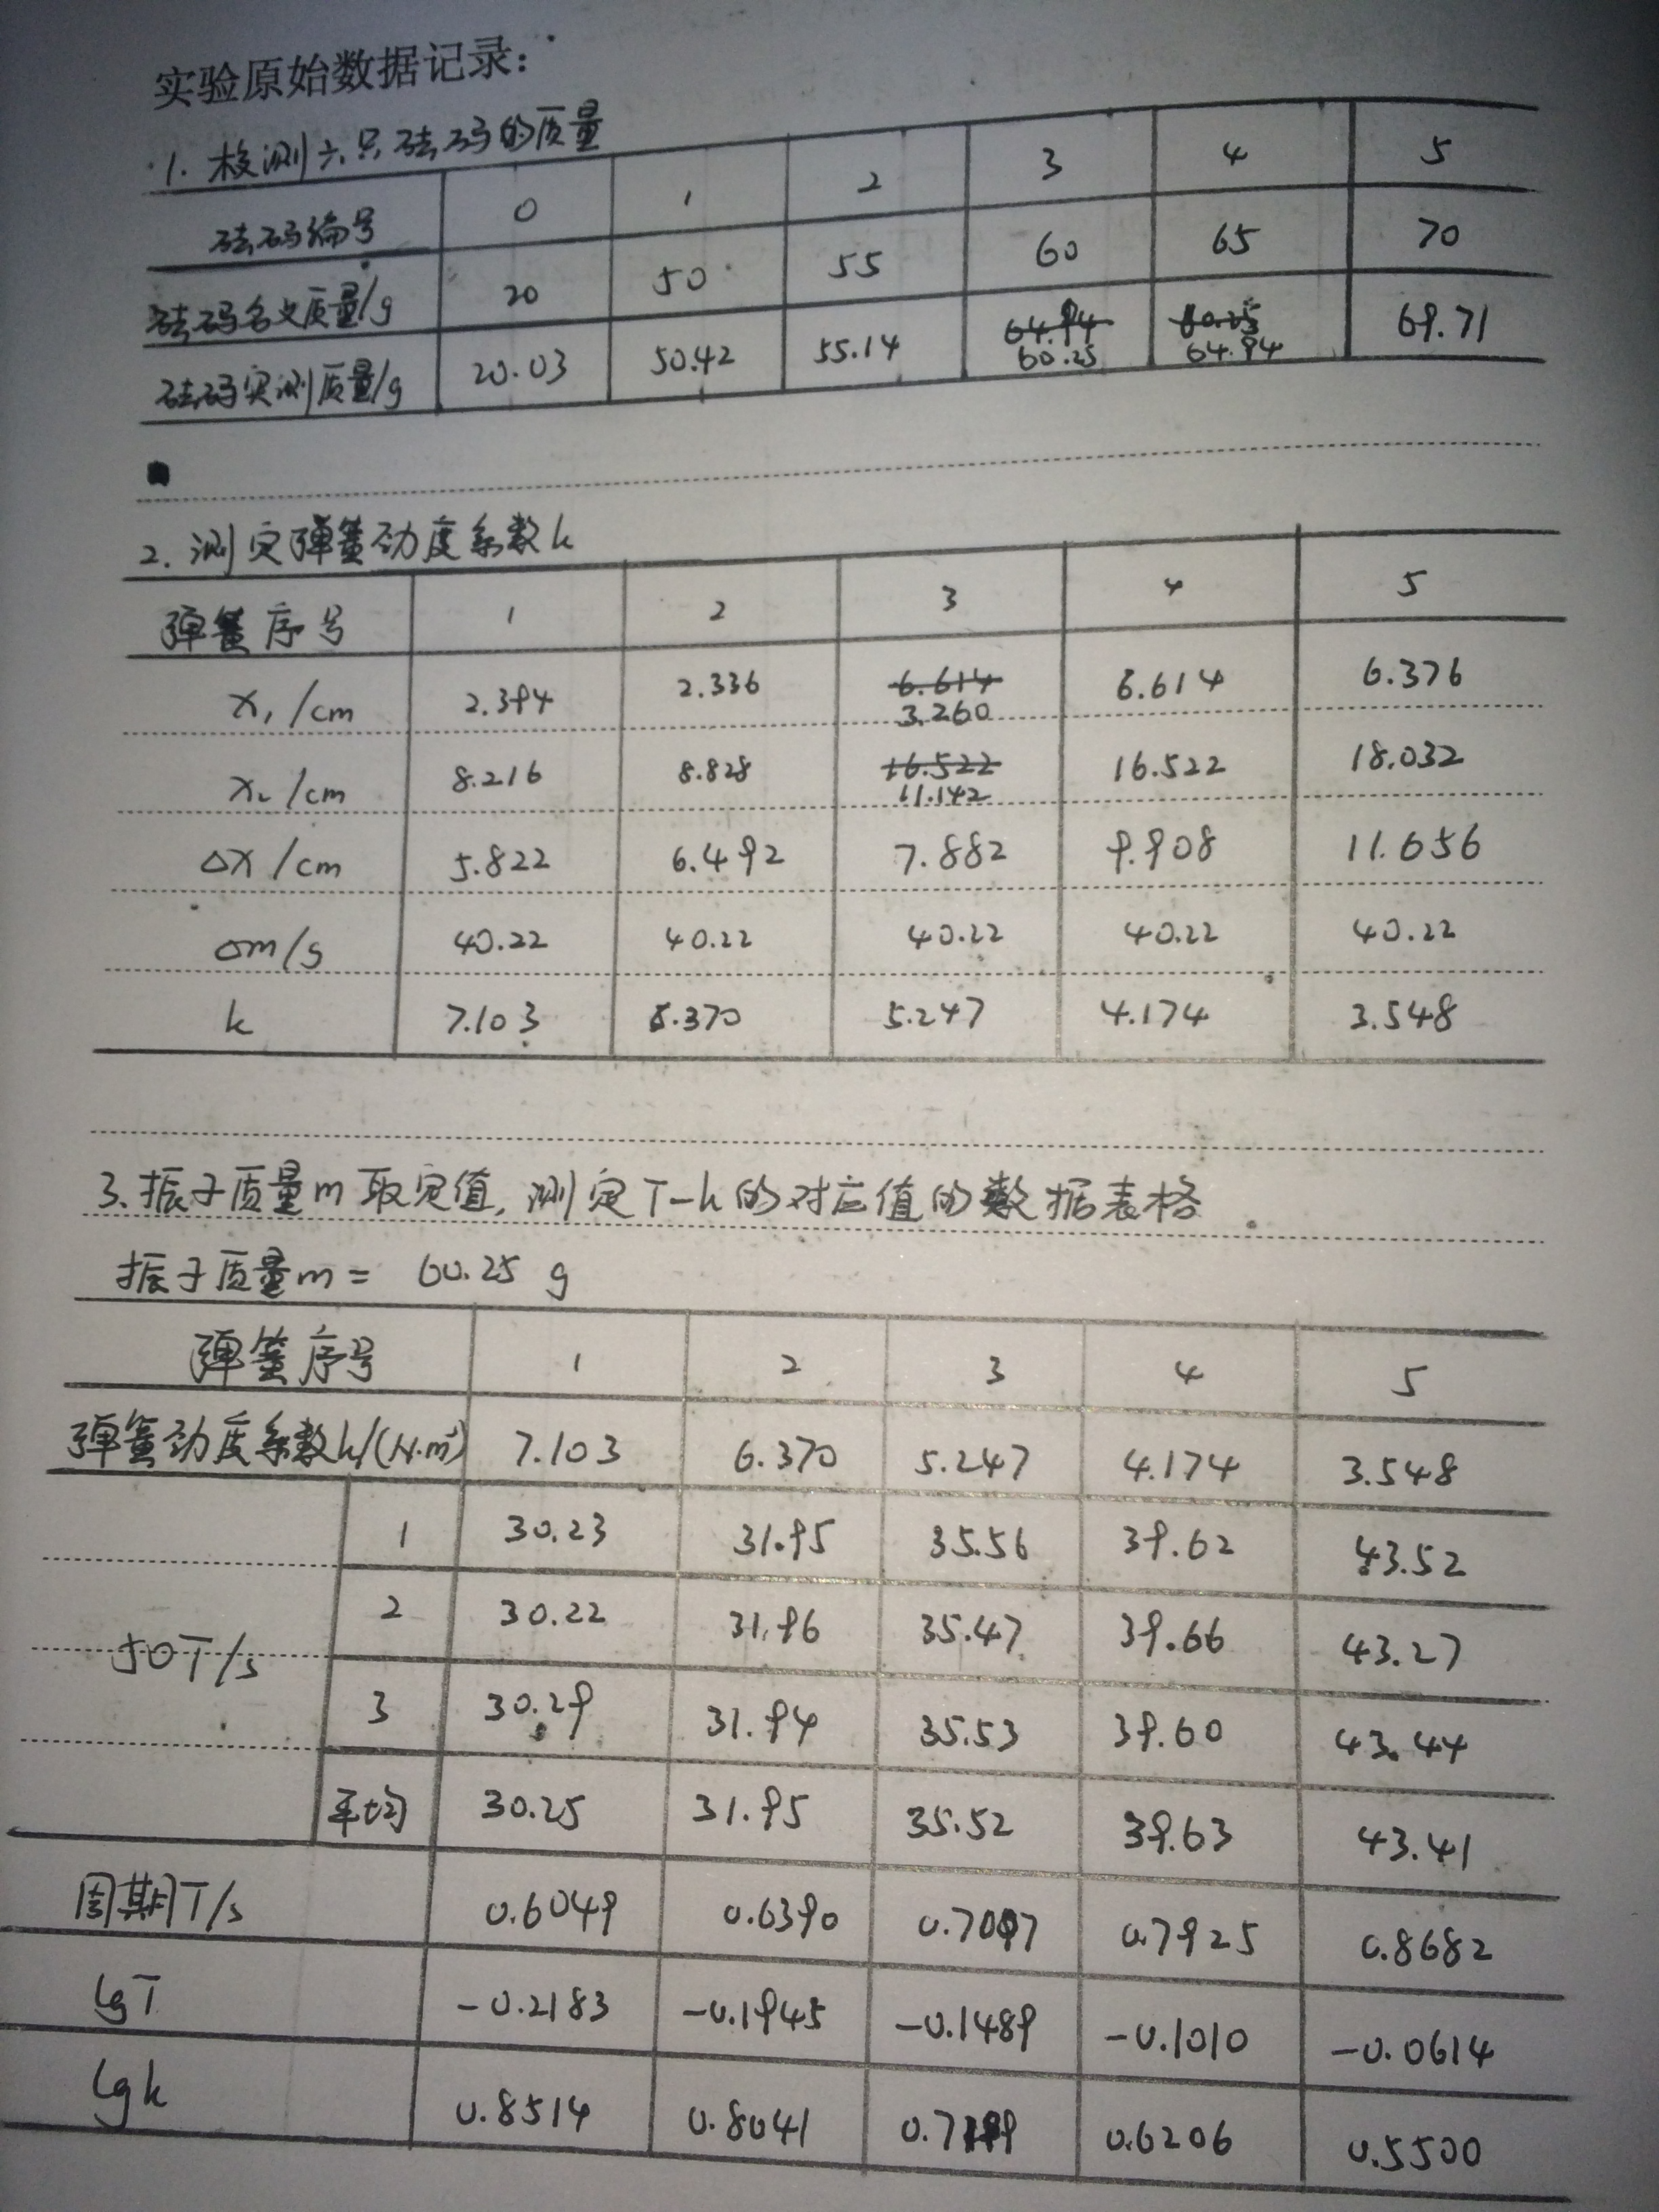 实验原始数据记录:
1. 校测六只砝码的质量
砝码编号 0 1 2 3 4 5
砝码名义质量/g 20 50 55 60 65 70
砝码实测质量/g 20.03 50.42 55.14 64.94 60.25 69.71
60.25 64.94
2. 测定弹簧劲度系数k
弹簧序号 1 2 3 4 5
x₁/cm 2.394 2.336 6.614 6.614 6.376
3.260
x₂/cm 8.216 8.828 16.522 16.522 18.032
11.142
Δx/cm 5.822 6.492 7.882 9.908 11.656
Δm/g 40.22 40.22 40.22 40.22 40.22
k 7.103 6.370 5.247 4.174 3.548
3. 振子质量m取定值, 测定T-k的对应值的数据表格
振子质量m = 60.25 g
弹簧序号 1 2 3 4 5
弹簧劲度系数k/(N·m⁻¹) 7.103 6.370 5.247 4.174 3.548
1 30.23 31.95 35.56 39.62 43.52
50T/s 2 30.22 31.96 35.47 39.66 43.27
3 30.29 31.94 35.53 39.60 43.44
平均 30.25 31.95 35.52 39.63 43.41
周期T/s 0.6049 0.6390 0.7097 0.7925 0.8682
lgT -0.2183 -0.1945 -0.1489 -0.1010 -0.0614
lgk 0.8514 0.8041 0.6206 0.5500